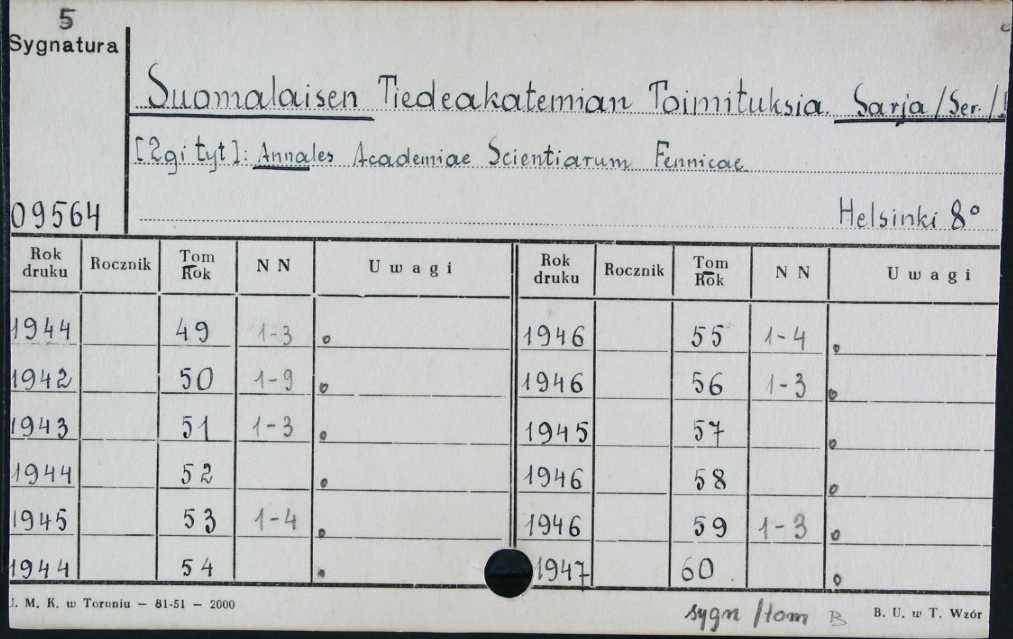 5
Sygnatura
Suomalaisen Tiedeakatemian Toimituksia. Sarja /Ser./
[2gi tyt]: Annales Academiae Scientiarum Fennicae
09564
Helsinki 8°
Rok druku Rocznik Tom Rok N N Uwagi Rok druku Rocznik Tom Rok N N Uwagi
1944 49 1-3 1946 55 1-4
1942 50 1-9 1946 56 1-3
1943 51 1-3 1945 57
1944 52 1946 58
1945 53 1-4 1946 59 1-3
1944 54 1947 60
U. M. K. w Toruniu — 81-51 — 2000
sygn /tom B
B. U. w T. Wzór